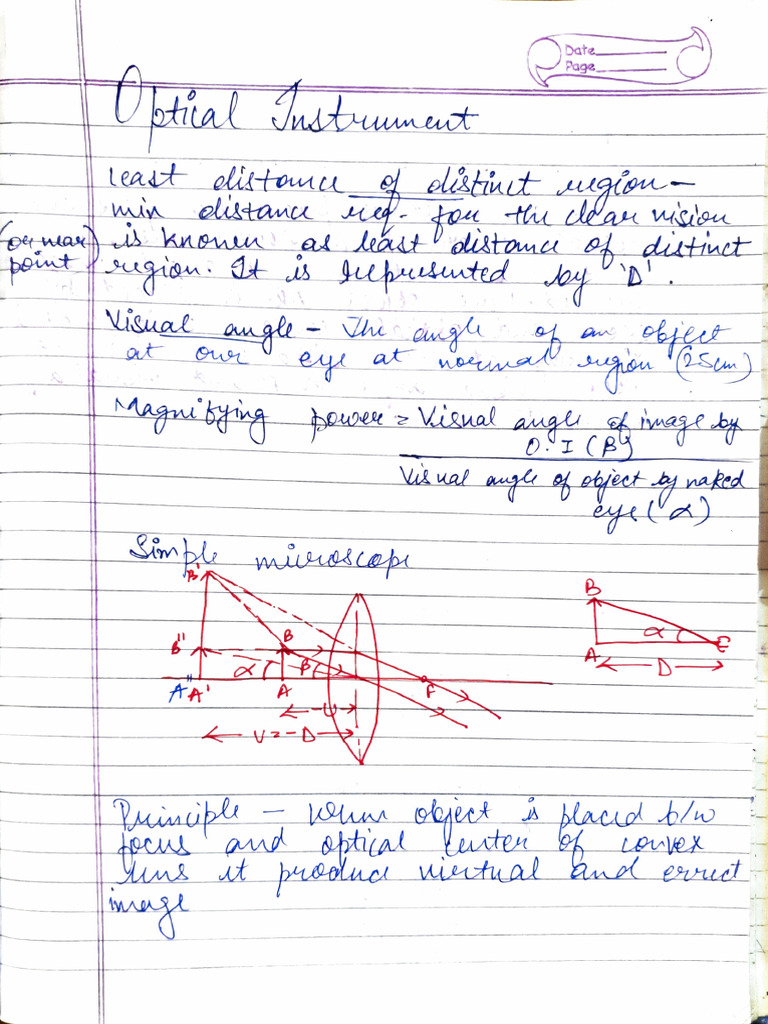 Date
Page
Optical Instrument
least distance of distinct region-
min distance req. for the clear vision
(or near point) is known as least distance of distinct
region. It is represented by 'D'.
Visual angle - The angle of an object
at our eye at normal region (25cm)
Magnifying power = Visual angle of image by
O.I (β)
Visual angle of object by naked
eye (α)
Simple microscope
B'
B
B'' B
α E
α β
A
A'' A' A F
D
-u
v=-D
Principle - When object is placed b/w
focus and optical center of convex
lens it produce virtual and errect
image